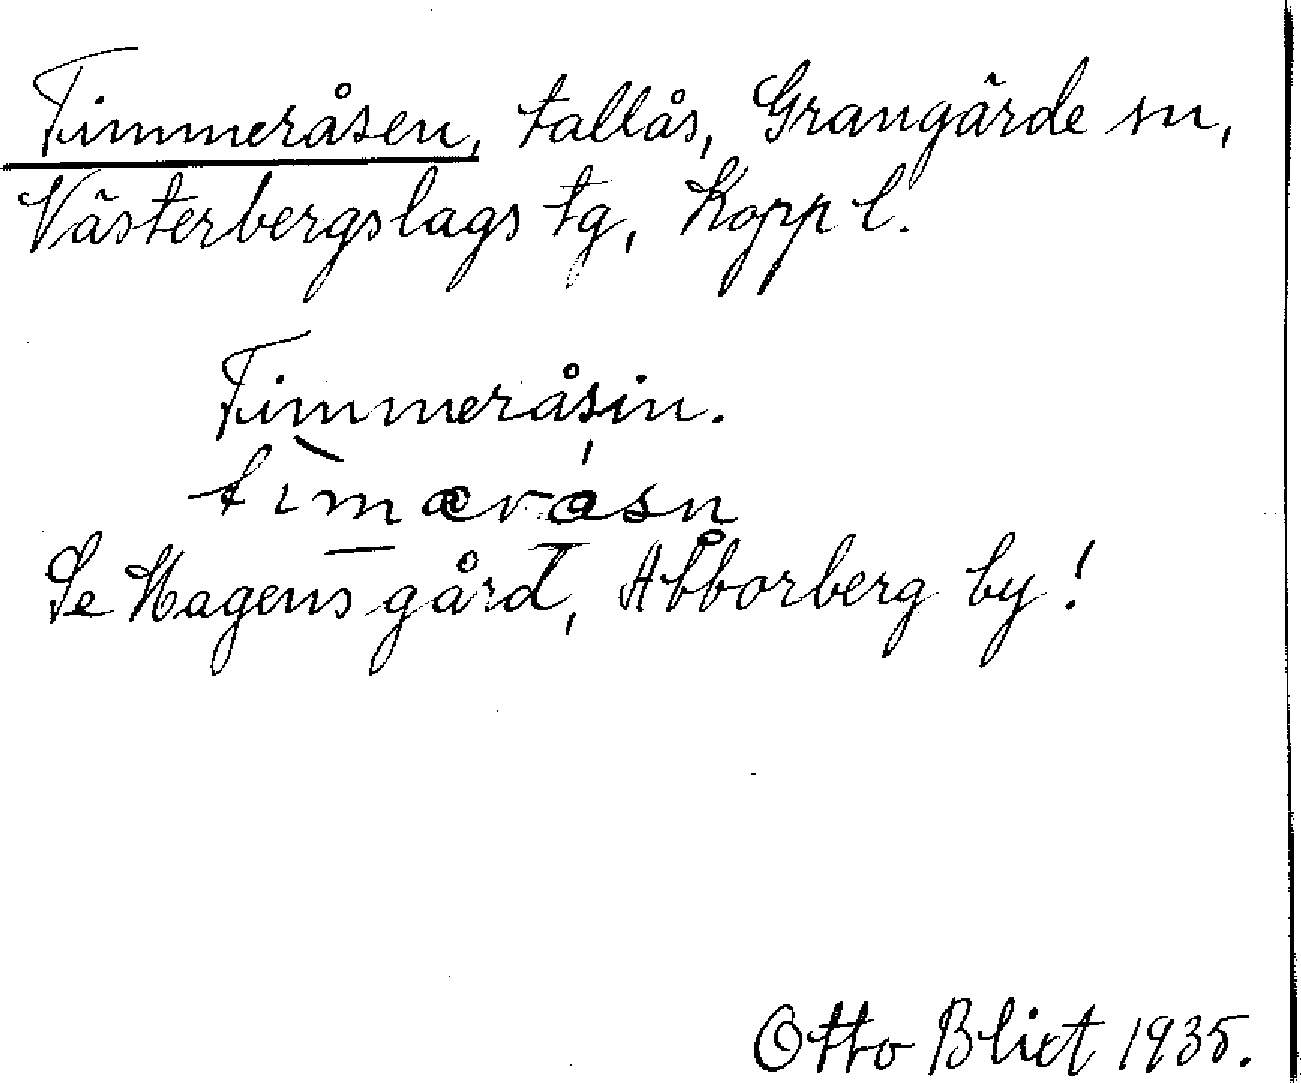 Timmeråsen, tallås, Grangärde sn,
Västerbergslags tg, Kopp l.
Timmeråsin.
Se Hagens gård, Abborberg by!
Otto Blixt 1935.